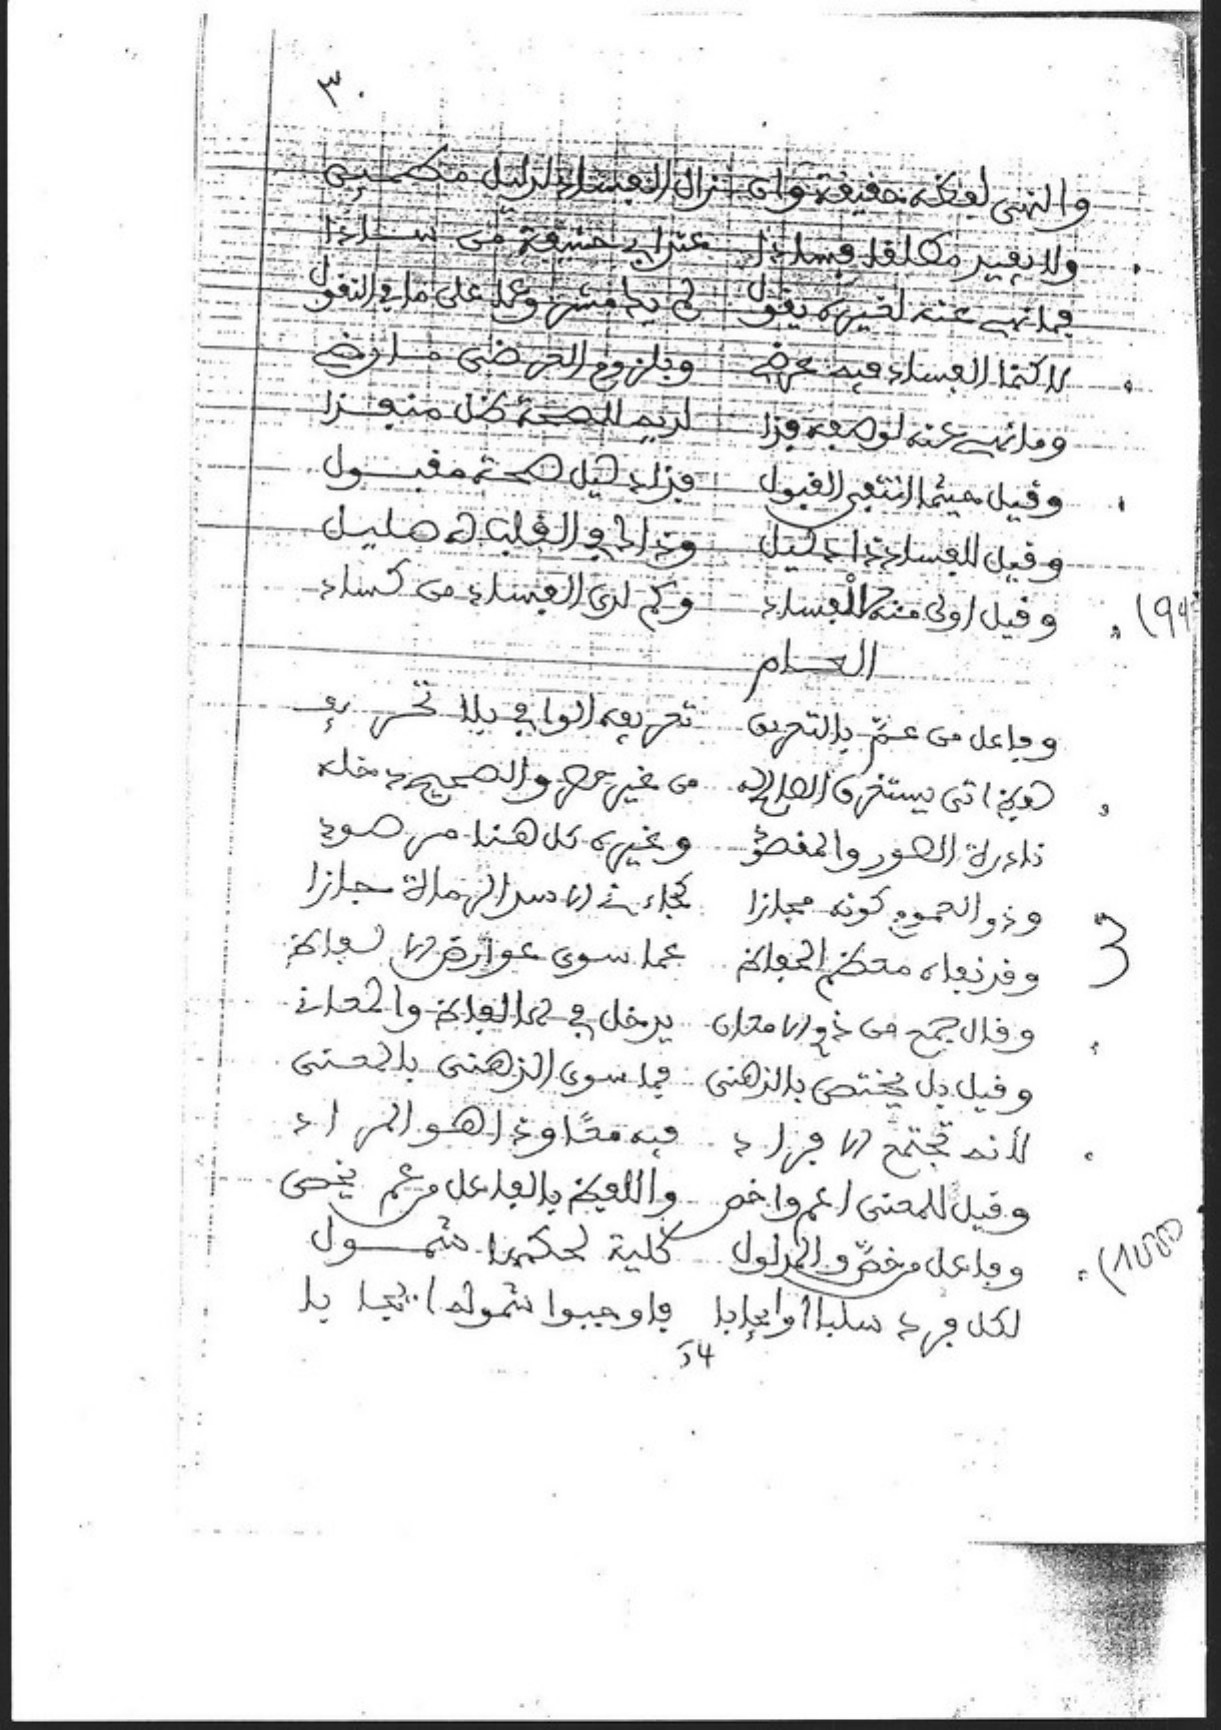 ٣٠
والنهي لفظه حقيقة وإن زال الفساد لدليل
ولا يفيد مطلقا فسادا عند أبي حنيفة من سادا
فما نهي عنه لغيره يقول لم وعلى ما في النقول
لاكنما الفساد فيه عرضي وبلزوم العرضي ما رضي
وما نهي عنه لوصفه فذا لديه للصحة ظل منفذا
وقيل حيثما انتفى القبول فذاك قيل صحة مقبول
وقيل للفساد ذا دليل وذا في القلب له صليل
وقيل أولى منه للفساد وكم لدى الفساد من كساد
العام
وفاعل من عم بالتعريف تعريفه الوافي بلا تحريف
لفظ أتى يستغرق الصالح له من غير حصر والصحيح دخله
نادرة الصور والمقصود وغيره كل هنا مرصود
وذو العموم كونه مجازا كجاءني الاسد الرماة جازا
وقد نفاه معظم الحفاظ عما سوى عوارض الالفاظ
وقال جمع من ذوي الامعان يدخل في الالفاظ والمعاني
وقيل بل يختص بالذهني فما سوى الذهني بالمعنى
لأنه تجتمع الافراد فيه معا وذا هو المراد
وقيل للمعنى أعم وأخص واللفظ بالفاعل من عم يخص
وفاعل من خص والمدلول كلية لحكمها شمول
لكل فرد سلبا أو إيجابا فأوجبوا شموله إيجابا
54
3
(1000